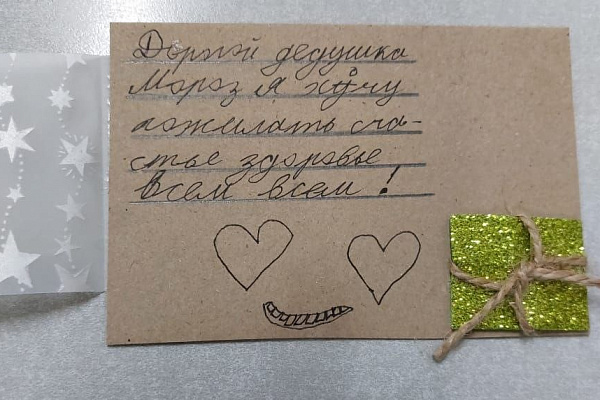 Дорогой дедушка
Мороз я хочу
пожилать сча-
стье здоровье
всем всем!